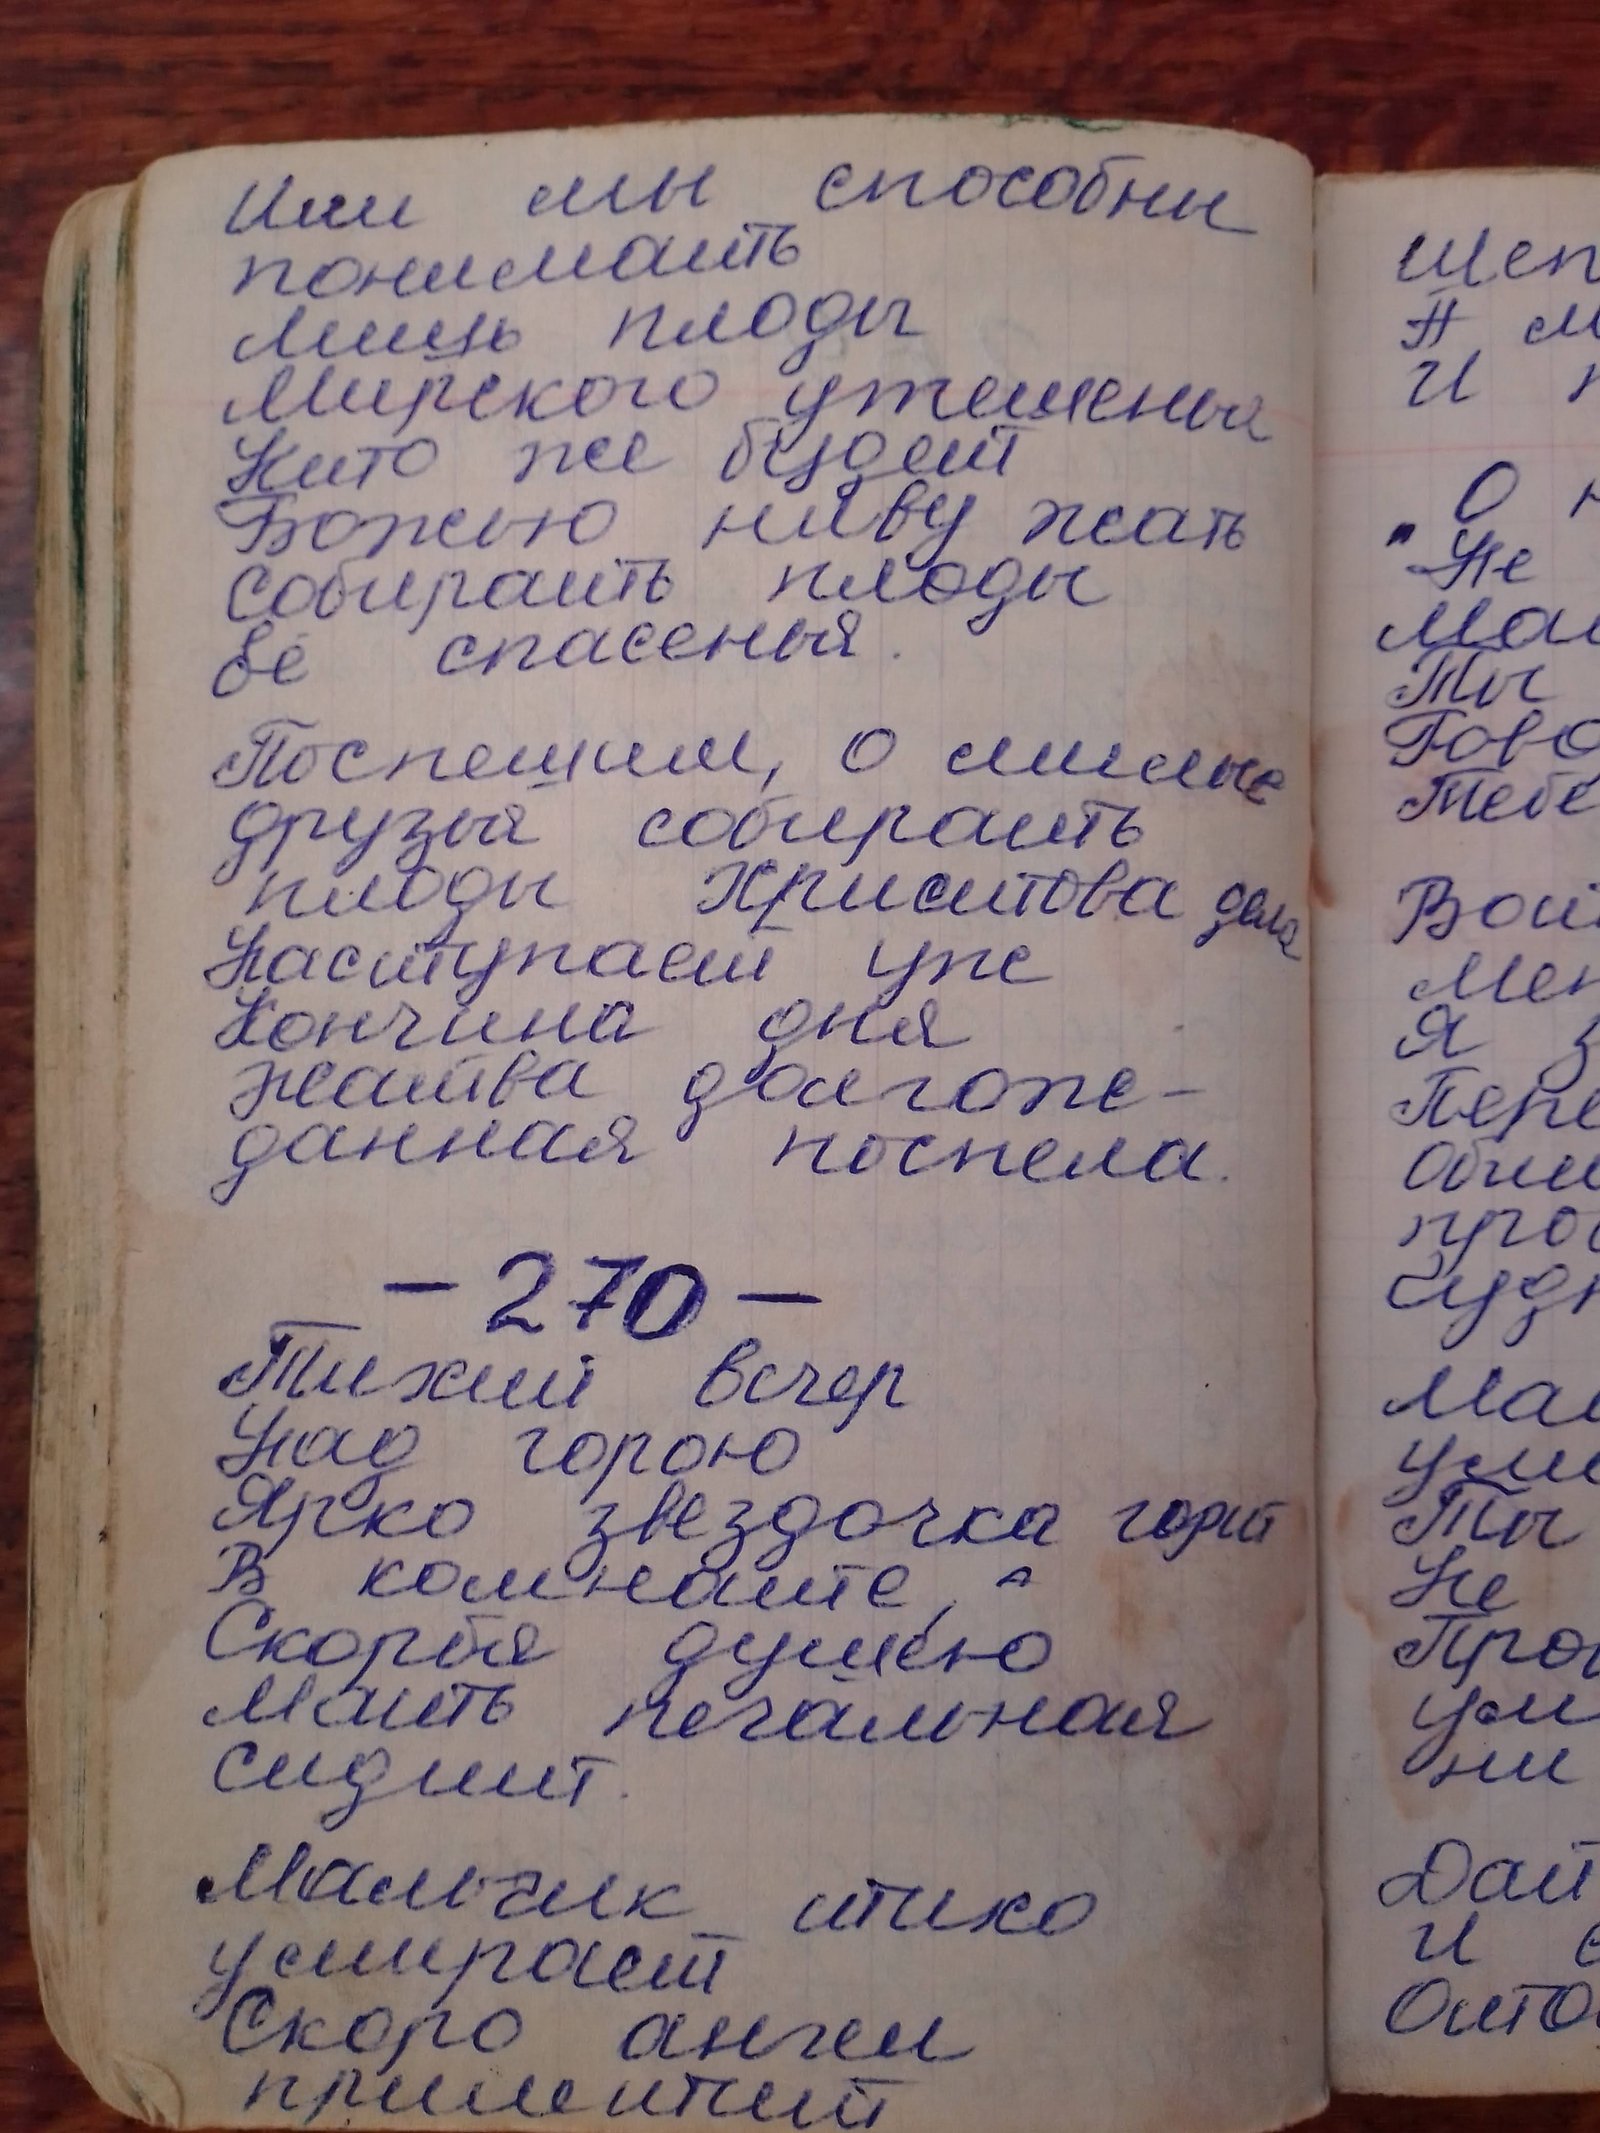 Или мы способны
понимать
Лишь плоды
Мирского утешенья
Кто же будет
Божью ниву жать
собирать плоды
её спасенья.
Поспешим, о милые
друзья собирать
плоды Христова дела
Наступает уже
Кончина дня
жатва долгоже-
данная поспела.
- 270 -
Тихий вечер
Над горою
Ярко звездочка горит
В комнате,
Скорбя душею
Мать печальная
сидит.
Мальчик тихо
умирает
Скоро ангел
прилетит
Шеп
И п
О н
"Не
Мам
Ты
Гово
Тебе
Вой
Мен
Я з
Пере
Обни
прос
Чудн
Мам
уми
Ты
Не
Про
ни
Дай
И с